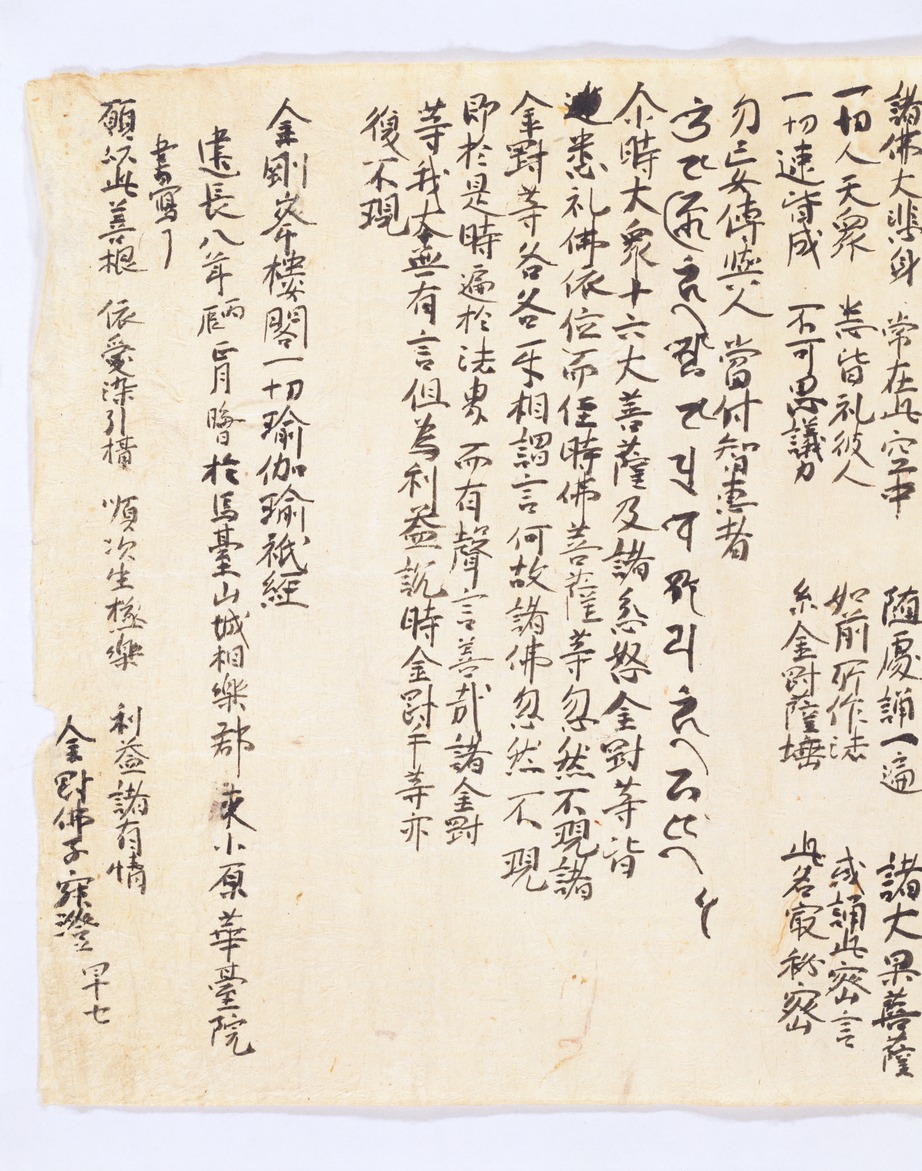 諸佛大悲身　常在此空中　随處誦一遍　諸大果菩薩
一切人天衆　悉皆礼彼人　如前所作法　或誦此密言
一切速皆成　不可思議力　金剛薩埵　此名最秘密
勿妄傳與人　當付智恵者
尓時大衆十六大菩薩及諸忿怒金剛等皆
悉礼佛依位而住時佛菩薩等忽然不現諸
金剛等各各互相謂言何故諸佛忽然不現
即於是時遍於法界而有聲言善哉諸金剛
等我本無有言但為利益説時金剛手等亦
復不現
金剛峯樓閣一切瑜伽瑜祇經
建長八年丙辰正月晦日於馬臺山城相樂郡東小原華臺院
書寫了
願以此善根　依愛染引攝　順次生極樂　利益諸有情
金剛佛子寂澄　卌七